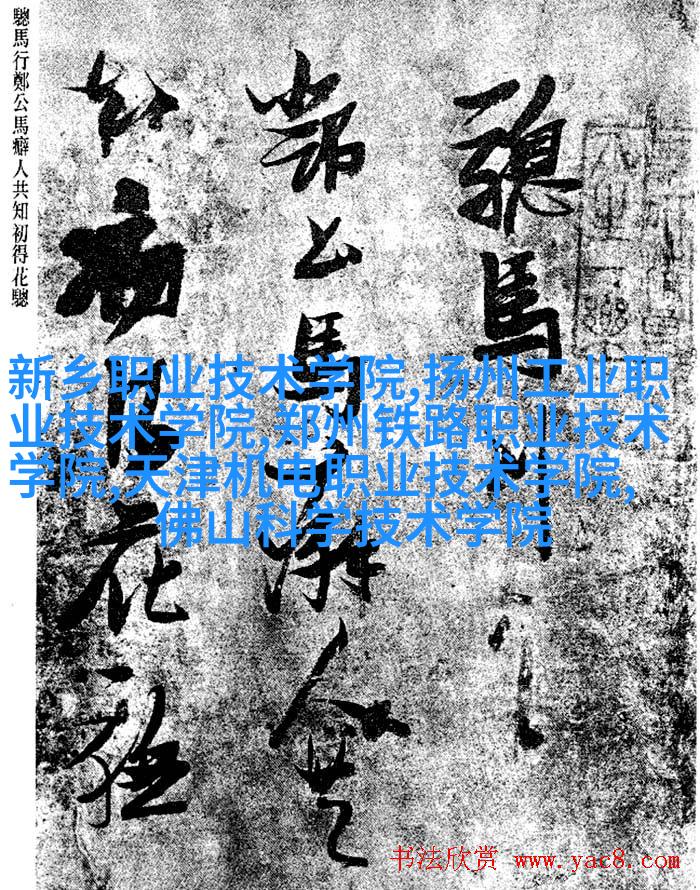 驄馬行
公馬癖人共
知初得花驄
驄馬行鄭公馬癖人共知初得花驄
新乡职业技术学院,扬州工业职
业技术学院,郑州铁路职业技术
学院,天津机电职业技术学院,
佛山科学技术学院
书法欣赏 www.yac8.com